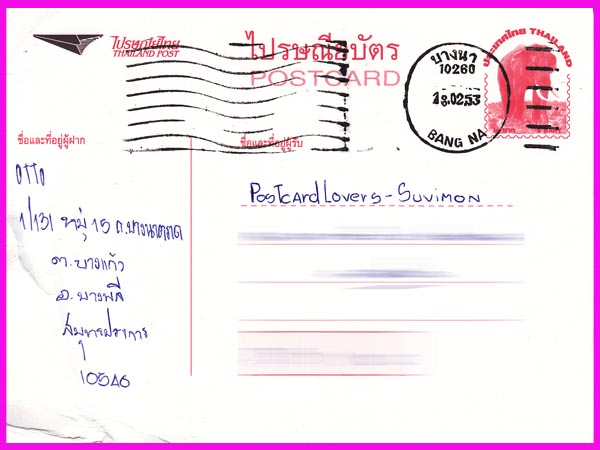 ไปรษณีย์ไทย
THAILAND POST
ไปรษณียบัตร
POSTCARD
บางนา
10260
18.02.53
BANG NA
ประเทศไทย THAILAND
ชื่อและที่อยู่ผู้ฝาก
ชื่อและที่อยู่ผู้รับ
OTTO
1/131 หมู่ 15 ถ.บางนาตราด
ต.บางแก้ว
อ.บางพลี
สมุทรปราการ
10540
PostcardLovers - SUVIMON